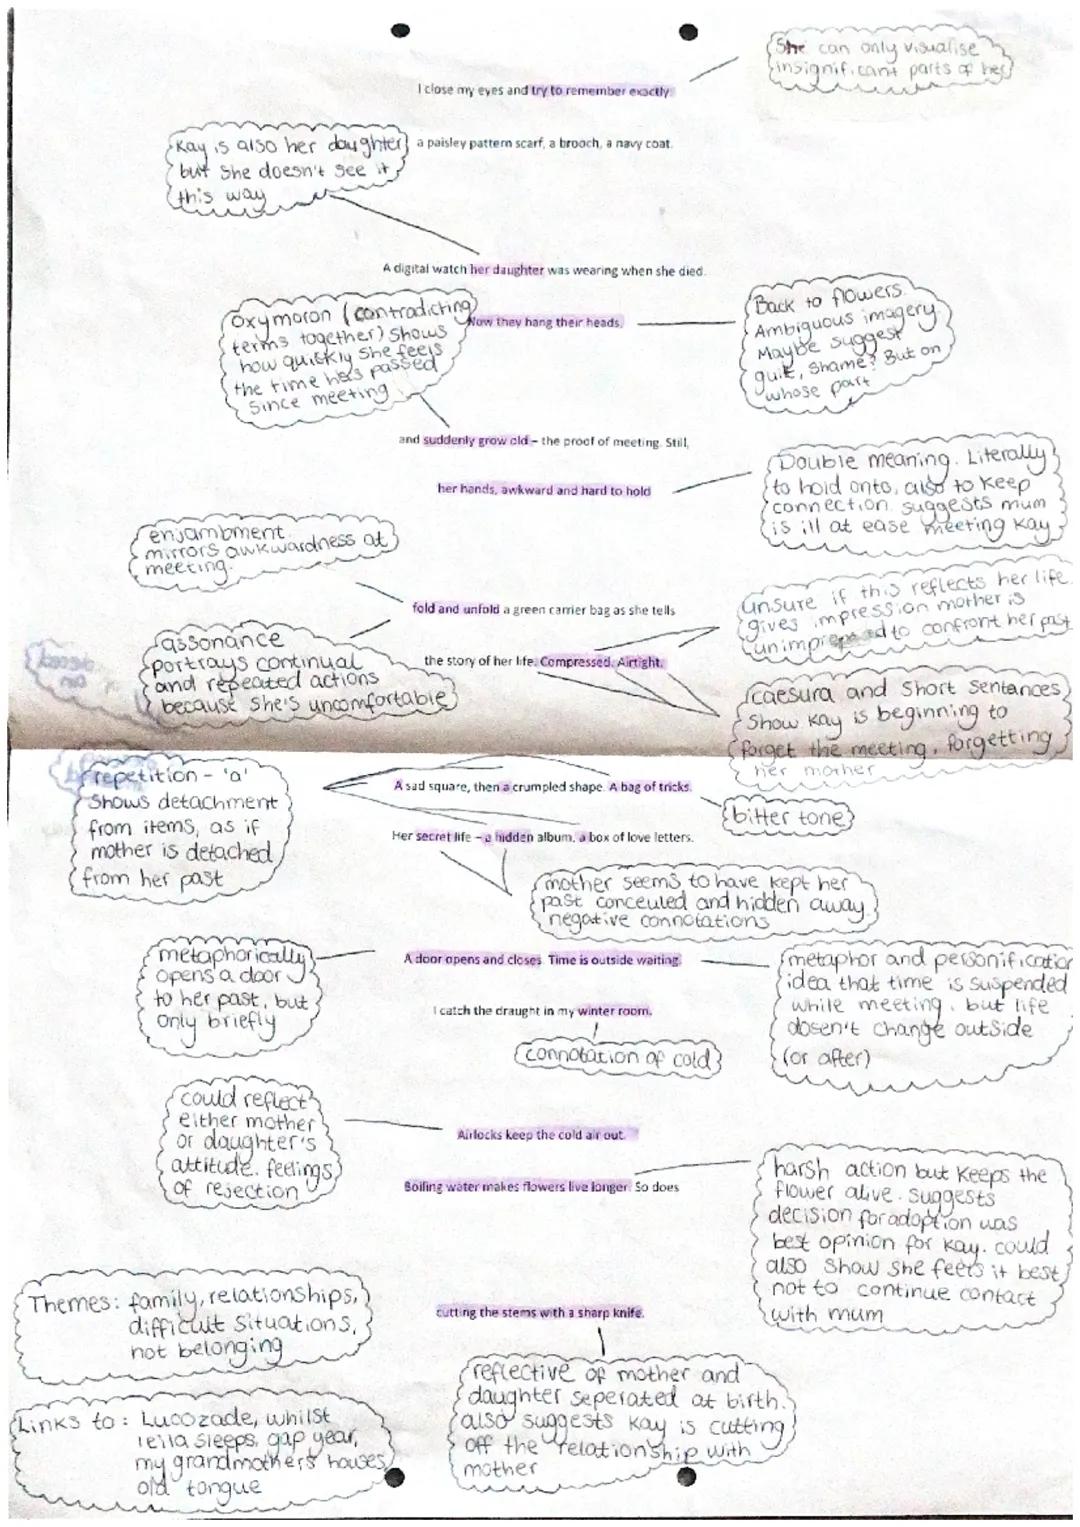 She can only visualise
insignificant parts of her
I close my eyes and try to remember exactly
Kay is also her daughter
but she doesn't see it
this way
a paisley pattern scarf, a brooch, a navy coat.
A digital watch her daughter was wearing when she died.
Oxymoron (contradicting
terms together) shows
how quickly she feels
the time has passed
since meeting
Now they hang their heads,
Back to flowers.
Ambiguous imagery
Maybe suggest
guilt, shame? But on
whose part
and suddenly grow old – the proof of meeting. Still,
her hands, awkward and hard to hold
Double meaning. Literally
to hold onto, also to keep
connection. suggests mum
is ill at ease meeting Kay
enjambment.
mirrors awkwardness at
meeting.
fold and unfold a green carrier bag as she tells
unsure if this reflects her life.
gives impression mother is
to confront her past
assonance
portrays continual
and repeated actions
because she's uncomfortable
the story of her life. Compressed. Airtight.
caesura and short sentances
show Kay is beginning to
forget the meeting, forgetting
her mother
repetition - 'a'
shows detachment
from items, as if
mother is detached
from her past
A sad square, then a crumpled shape. A bag of tricks.
bitter tone
Her secret life – a hidden album, a box of love letters.
mother seems to have kept her
past conceuled and hidden away
negative connotations
metaphorically
opens a door
to her past, but
only briefly
A door opens and closes. Time is outside waiting.
metaphor and personification
idea that time is suspended
while meeting, but life
dosen't change outside
(or after)
I catch the draught in my winter room.
connotation of cold
could reflect
either mother
or daughter's
attitude. feelings
of rejection
Airlocks keep the cold air out.
Boiling water makes flowers live longer. So does
harsh action but keeps the
flower alive. suggests
decision for adoption was
best opinion for Kay. could
also show she feels it best
not to continue contact
with mum
Themes: family, relationships,
difficult situations,
not belonging
cutting the stems with a sharp knife.
reflective of mother and
daughter seperated at birth.
also suggests Kay is cutting
off the relationship with
mother
Links to: Lucozade, whilst
leila sleeps, gap year,
my grandmother's houses,
old tongue